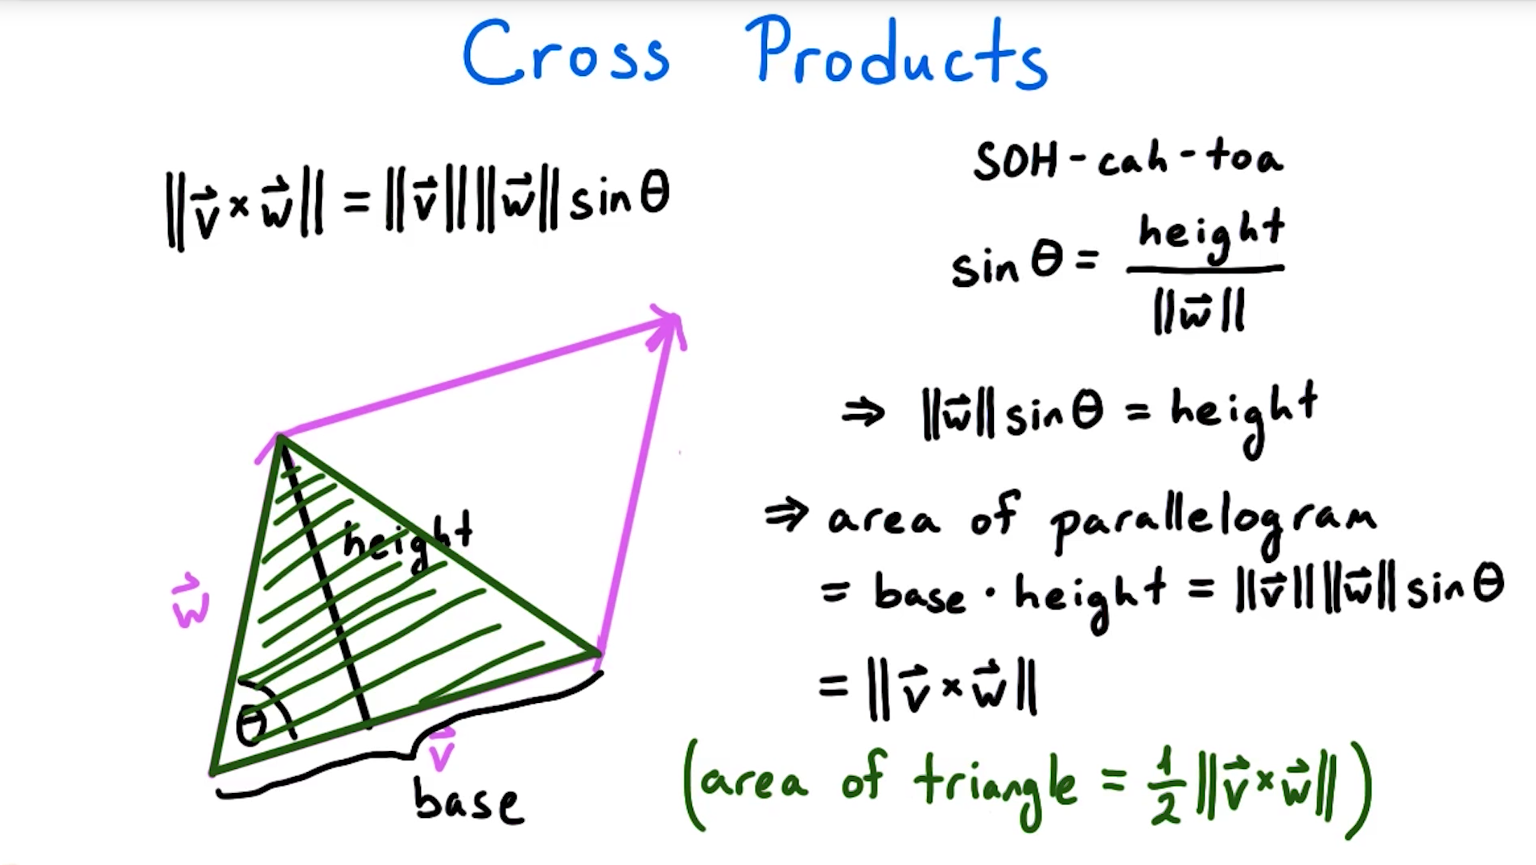 Cross Products
‖v⃗ × w⃗‖ = ‖v⃗‖ ‖w⃗‖ sin θ
height
w⃗
θ
v⃗
base
SOH - cah - toa
sin θ = height / ‖w⃗‖
⇒ ‖w⃗‖ sin θ = height
⇒ area of parallelogram
= base · height = ‖v⃗‖ ‖w⃗‖ sin θ
= ‖v⃗ × w⃗‖
(area of triangle = 1/2 ‖v⃗ × w⃗‖)